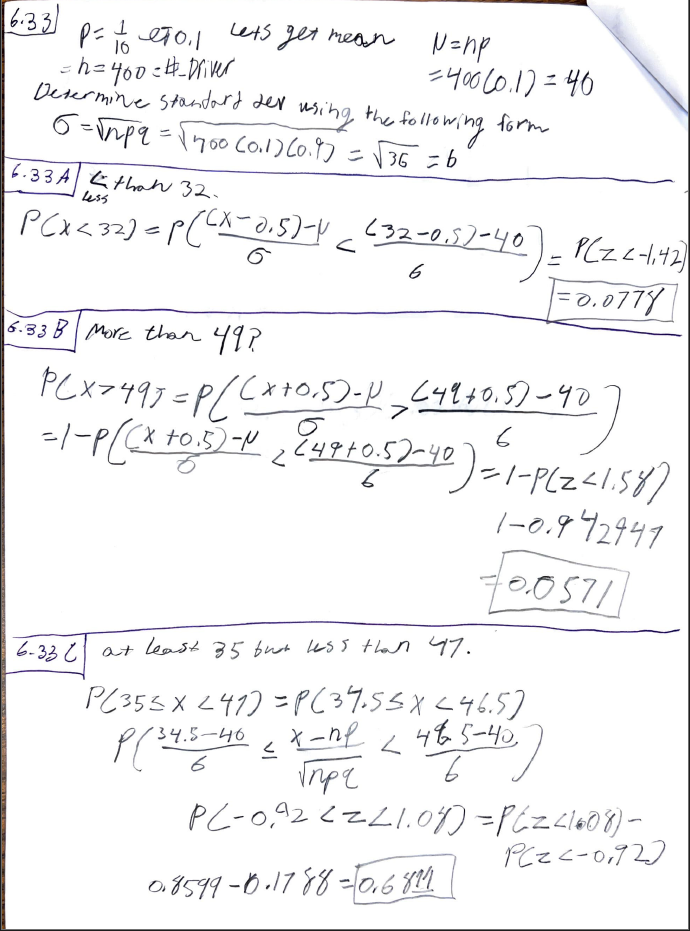 6.33
P = 1/10 or 0.1 Lets get mean N = np
= n = 400 = # Driver = 400(0.1) = 40
Determine standard dev using the following form
σ = √npq = √400(0.1)(0.9) = √36 = 6
6.33A less than 32.
P(X<32) = P((X-0.5)-N/σ < (32-0.5)-40/6) = P(Z<-1.42)
=0.0778
6.33B More than 49?
P(X>49) = P((X+0.5)-N/σ > (49+0.5)-40/6)
=1-P((X+0.5)-N/σ < (49+0.5)-40/6) = 1-P(Z<1.58)
1-0.942947
= 0.0571
6.33C at least 35 but less than 47.
P(35≤X<47) = P(34.5≤X<46.5)
P(34.5-40/6 ≤ X-np/√npq < 46.5-40/6)
P(-0.92<Z<1.08) = P(Z<1.08)-
P(Z<-0.92)
0.8599-0.1788=0.6811